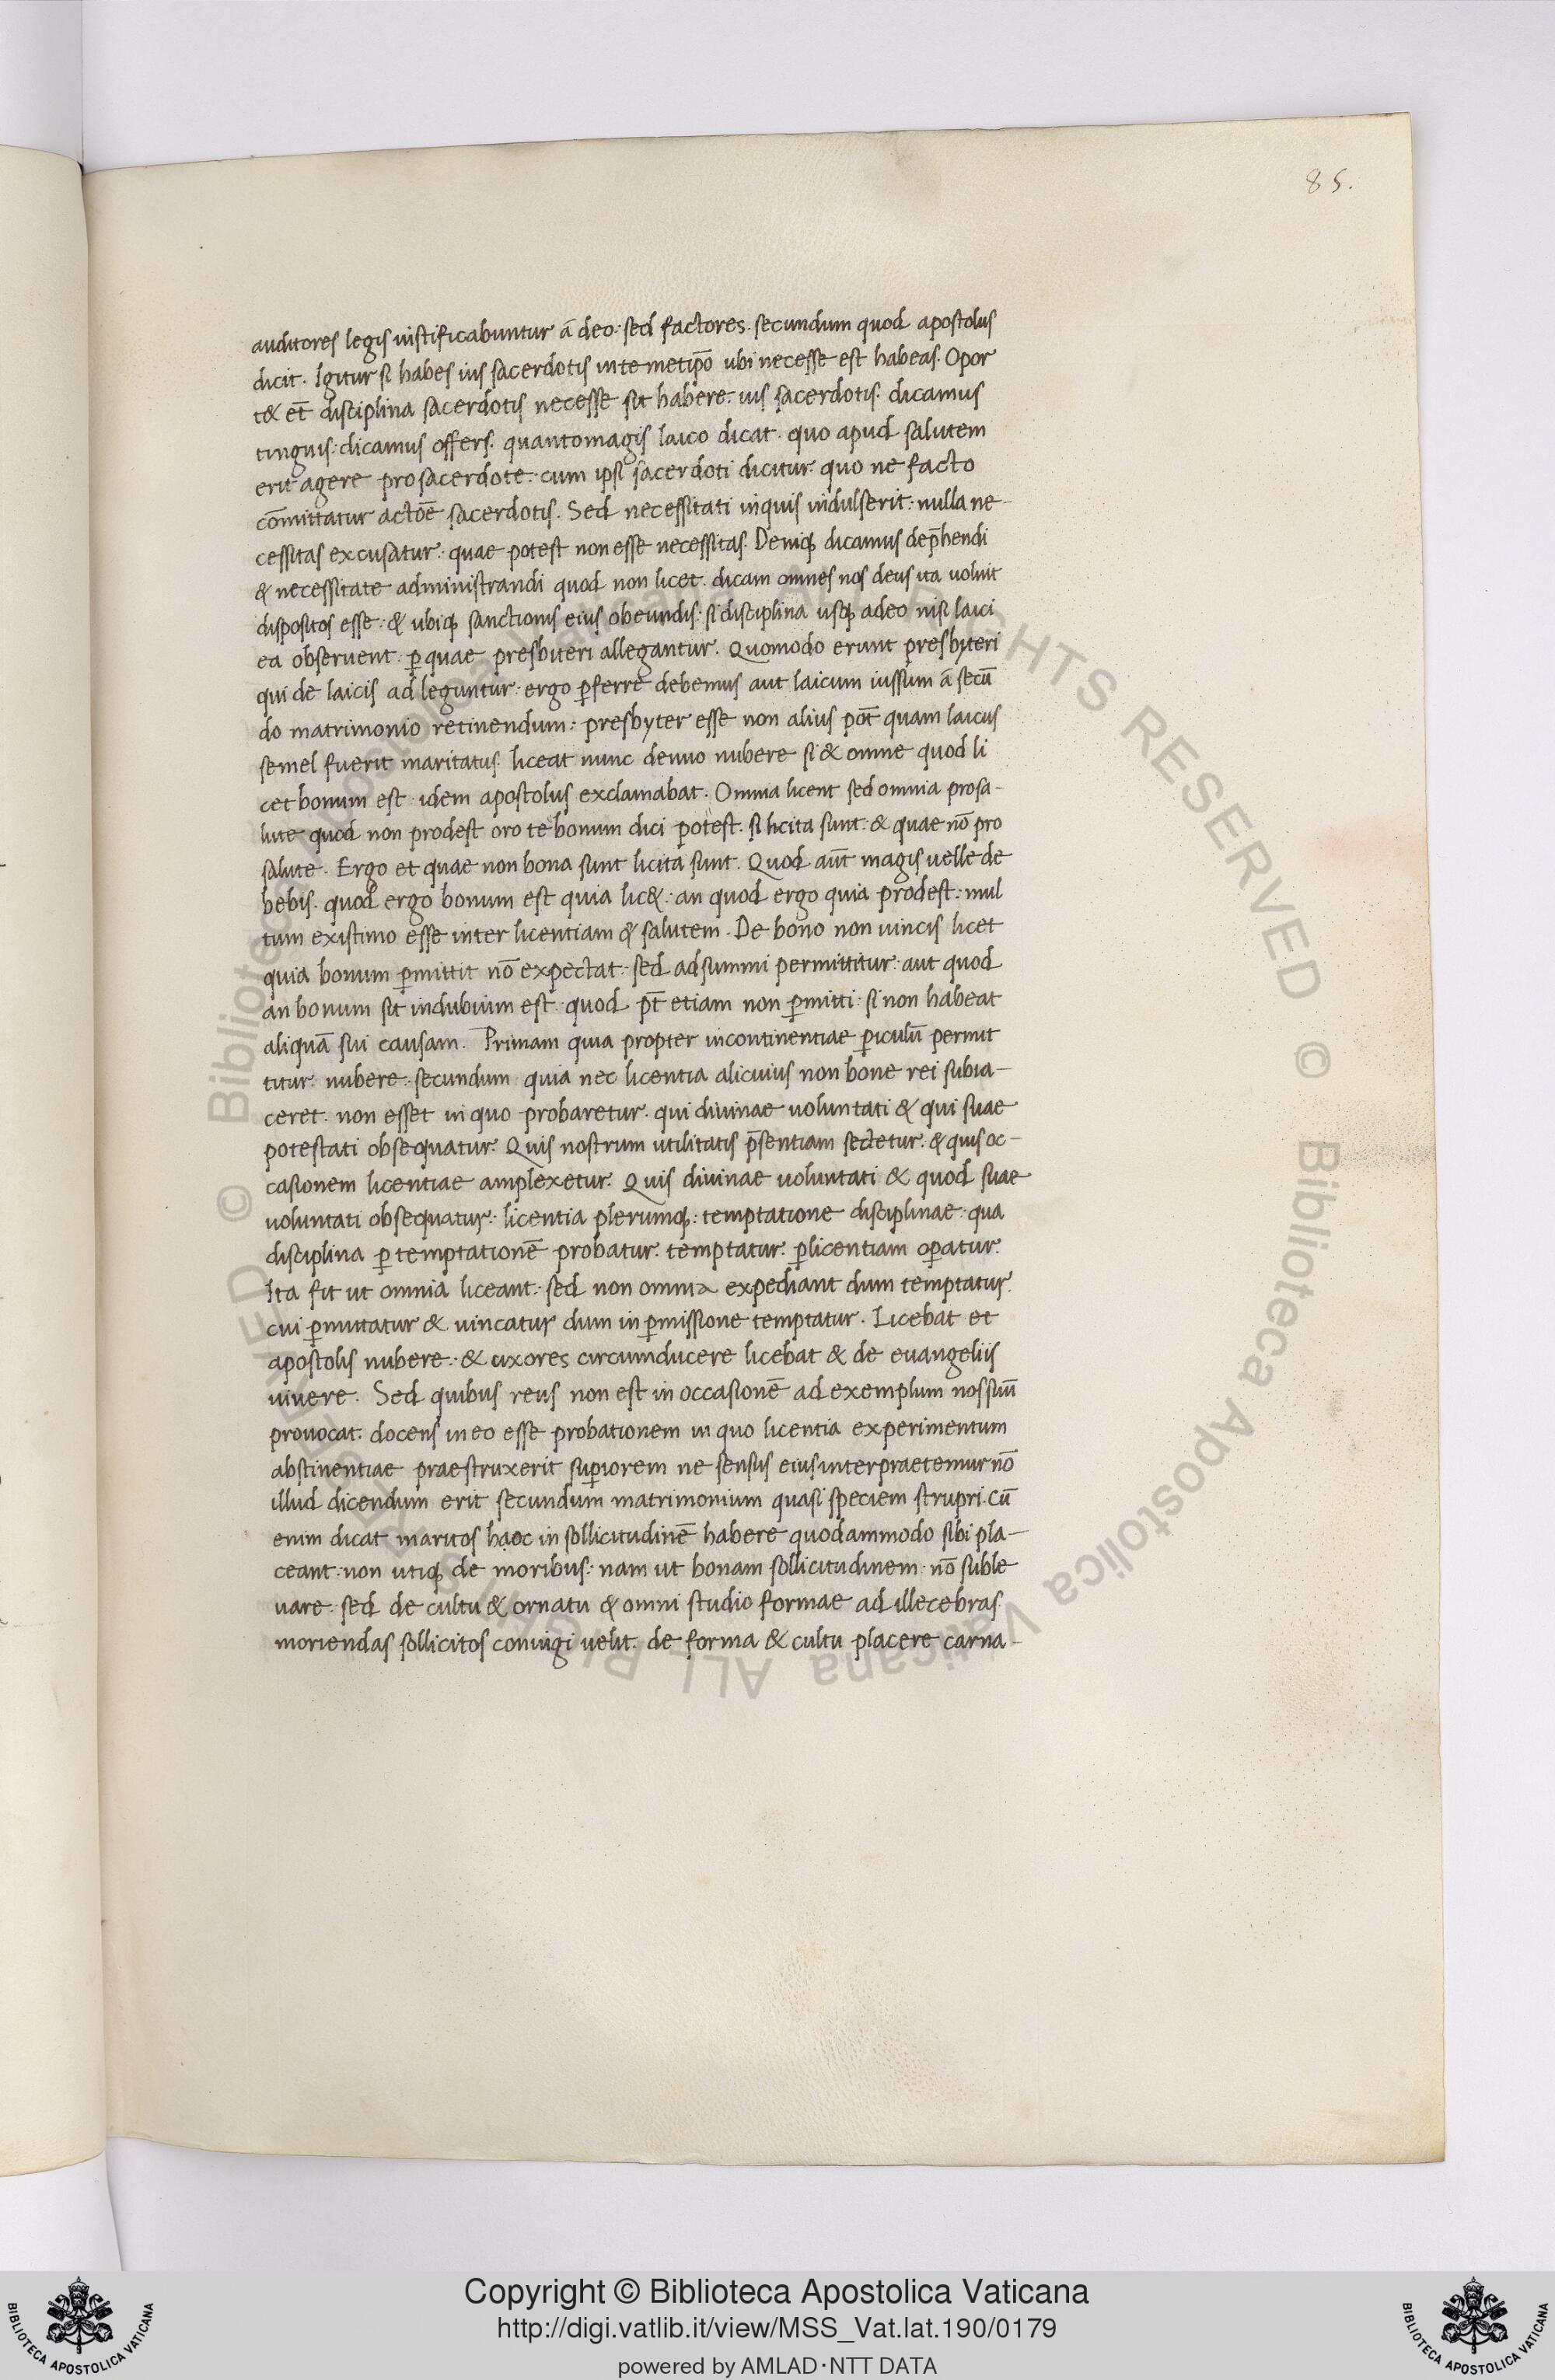 85.
auditores legis iustificabuntur ā deo: sed factores. secundum quod apostolus
dicit. Igitur si habes ius sacerdotis in te metip̄o ubi necesse est habeas. Opor
t& et̄ disciplina sacerdotis necesse sit habere. ius sacerdotis. dicamus
tinguis: dicamus offers. quantomagis laico dicat. quo apud salutem
erit agere pro sacerdote: cum ipsi sacerdoti dicitur. quo ne facto
cōmittatur actōe sacerdotis. Sed necessitati inquis indulserit: nulla ne-
cessitas excusatur: quae potest non esse necessitas. Deniq; dicamus dep̄hendi
& necessitate administrandi quod non licet. dicam omnes nos deus ita voluit
dispositos esse: & ubiq; sanctionis eius obeundis: si disciplina usq; adeo nisi laici
ea observent. ꝑ quae presbiteri allegantur. Quomodo erunt presbyteri
qui de laicis ad leguntur: ergo ꝑferre debemus aut laicum iussum ā secū
do matrimonio retinendum: presbyter esse non alius pōt quam laicus
semel fuerit maritatus. liceat nunc denuo nubere si & omne quod li
cet bonum est idem apostolus exclamabat. Omnia licent sed omnia pro sa-
lute quod non prodest oro te bonum dici potest. si licita sunt: & quae nō pro
salute. Ergo et quae non bona sunt licita sunt. Quod aūt magis uelle de
bebis. quod ergo bonum est quia lic&: an quod ergo quia prodest: mul
tum existimo esse inter licentiam & salutem. De bono non uincis licet
quia bonum ꝑmittit nō expectat: sed adsummi permittitur: aut quod
an bonum sit indubium est: quod pt̄ etiam non ꝑmitti: si non habeat
aliquā sui causam. Primam quia propter incontinentiae ꝑiculū permit
titur nubere: secundum quia nec licentia alicuius non bone rei subia-
ceret. non esset in quo probaretur. qui divinae uoluntati & qui suae
potestati obsequatur. Quis nostrum utilitatis p̄sentiam sectetur. & quis oc-
casionem licentiae amplexetur. Quis divinae uoluntati & quod suae
uoluntati obsequatur: licentia plerumq;: temptatione disciplinae: qua
disciplina ꝑ temptationē probatur: temptatur: ꝑ licentiam oꝑatur.
Ita fit ut omnia liceant: sed non omnia expediant dum temptatur.
cui ꝑmittatur & uincatur dum in ꝑmissione temptatur. Licebat et
apostolis nubere: & uxores circumducere licebat & de evangeliis
uivere. Sed quibus reus non est in occasionē ad exemplum nos suū
provocat. docens in eo esse probationem in quo licentia experimentum
abstinentiae praestruxerit suꝑiorem ne sensus eius interpraetemur nō
illud dicendum erit secundum matrimonium quasi speciem strupri. Cū
enim dicat maritos haoc in sollicitudinē habere quodammodo sibi pla-
ceant: non utiq; de moribus: nam ut bonam sollicitudinem nō suble
uare: sed de cultu & ornatu & omni studio formae ad illecebras
moriendas sollicitos coniugi uelit. de forma & cultu placere carna-
Copyright © Biblioteca Apostolica Vaticana
http://digi.vatlib.it/view/MSS_Vat.lat.190/0179
powered by AMLAD·NTT DATA